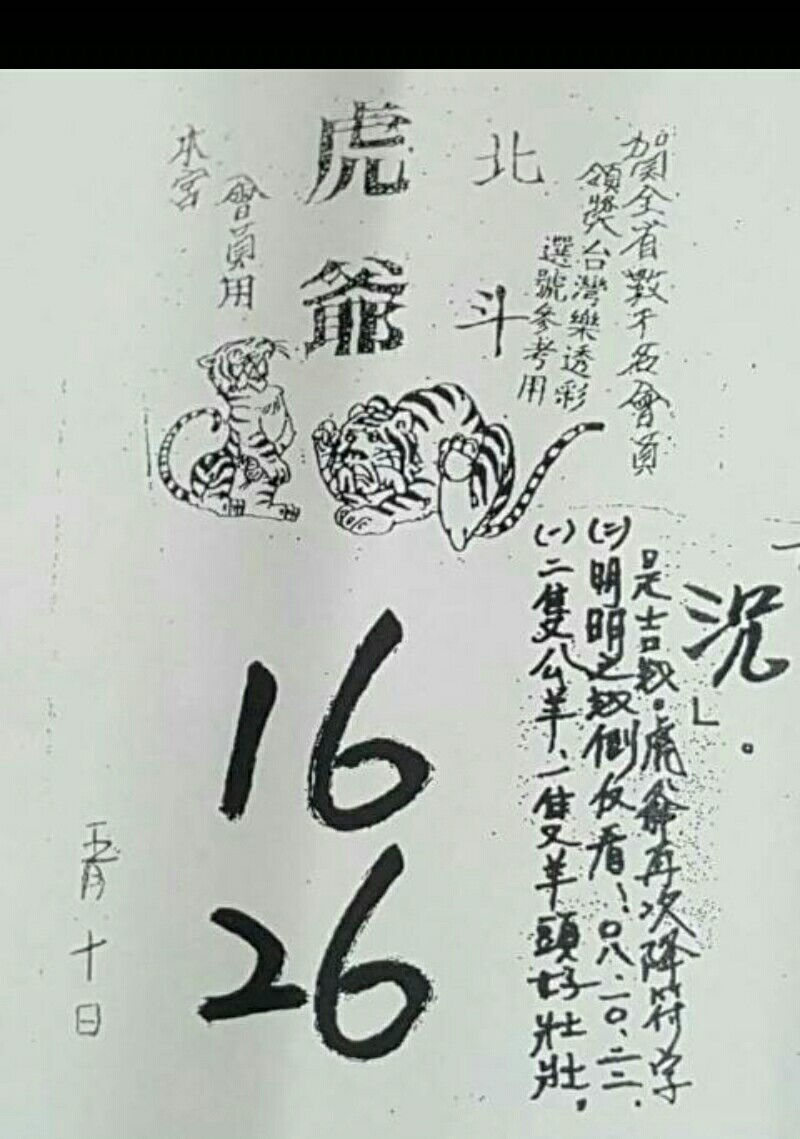 賀全省數千名會員
領獎台灣樂透彩
選號參考用
北斗
虎爺
會員用
本宮
」。
是吉数。虎爺再次降符字
(二)明明之数倒反看、〇八.一〇.二二.
(一)二隻公羊、一隻羊頭好壯壯。
16
26
月十日